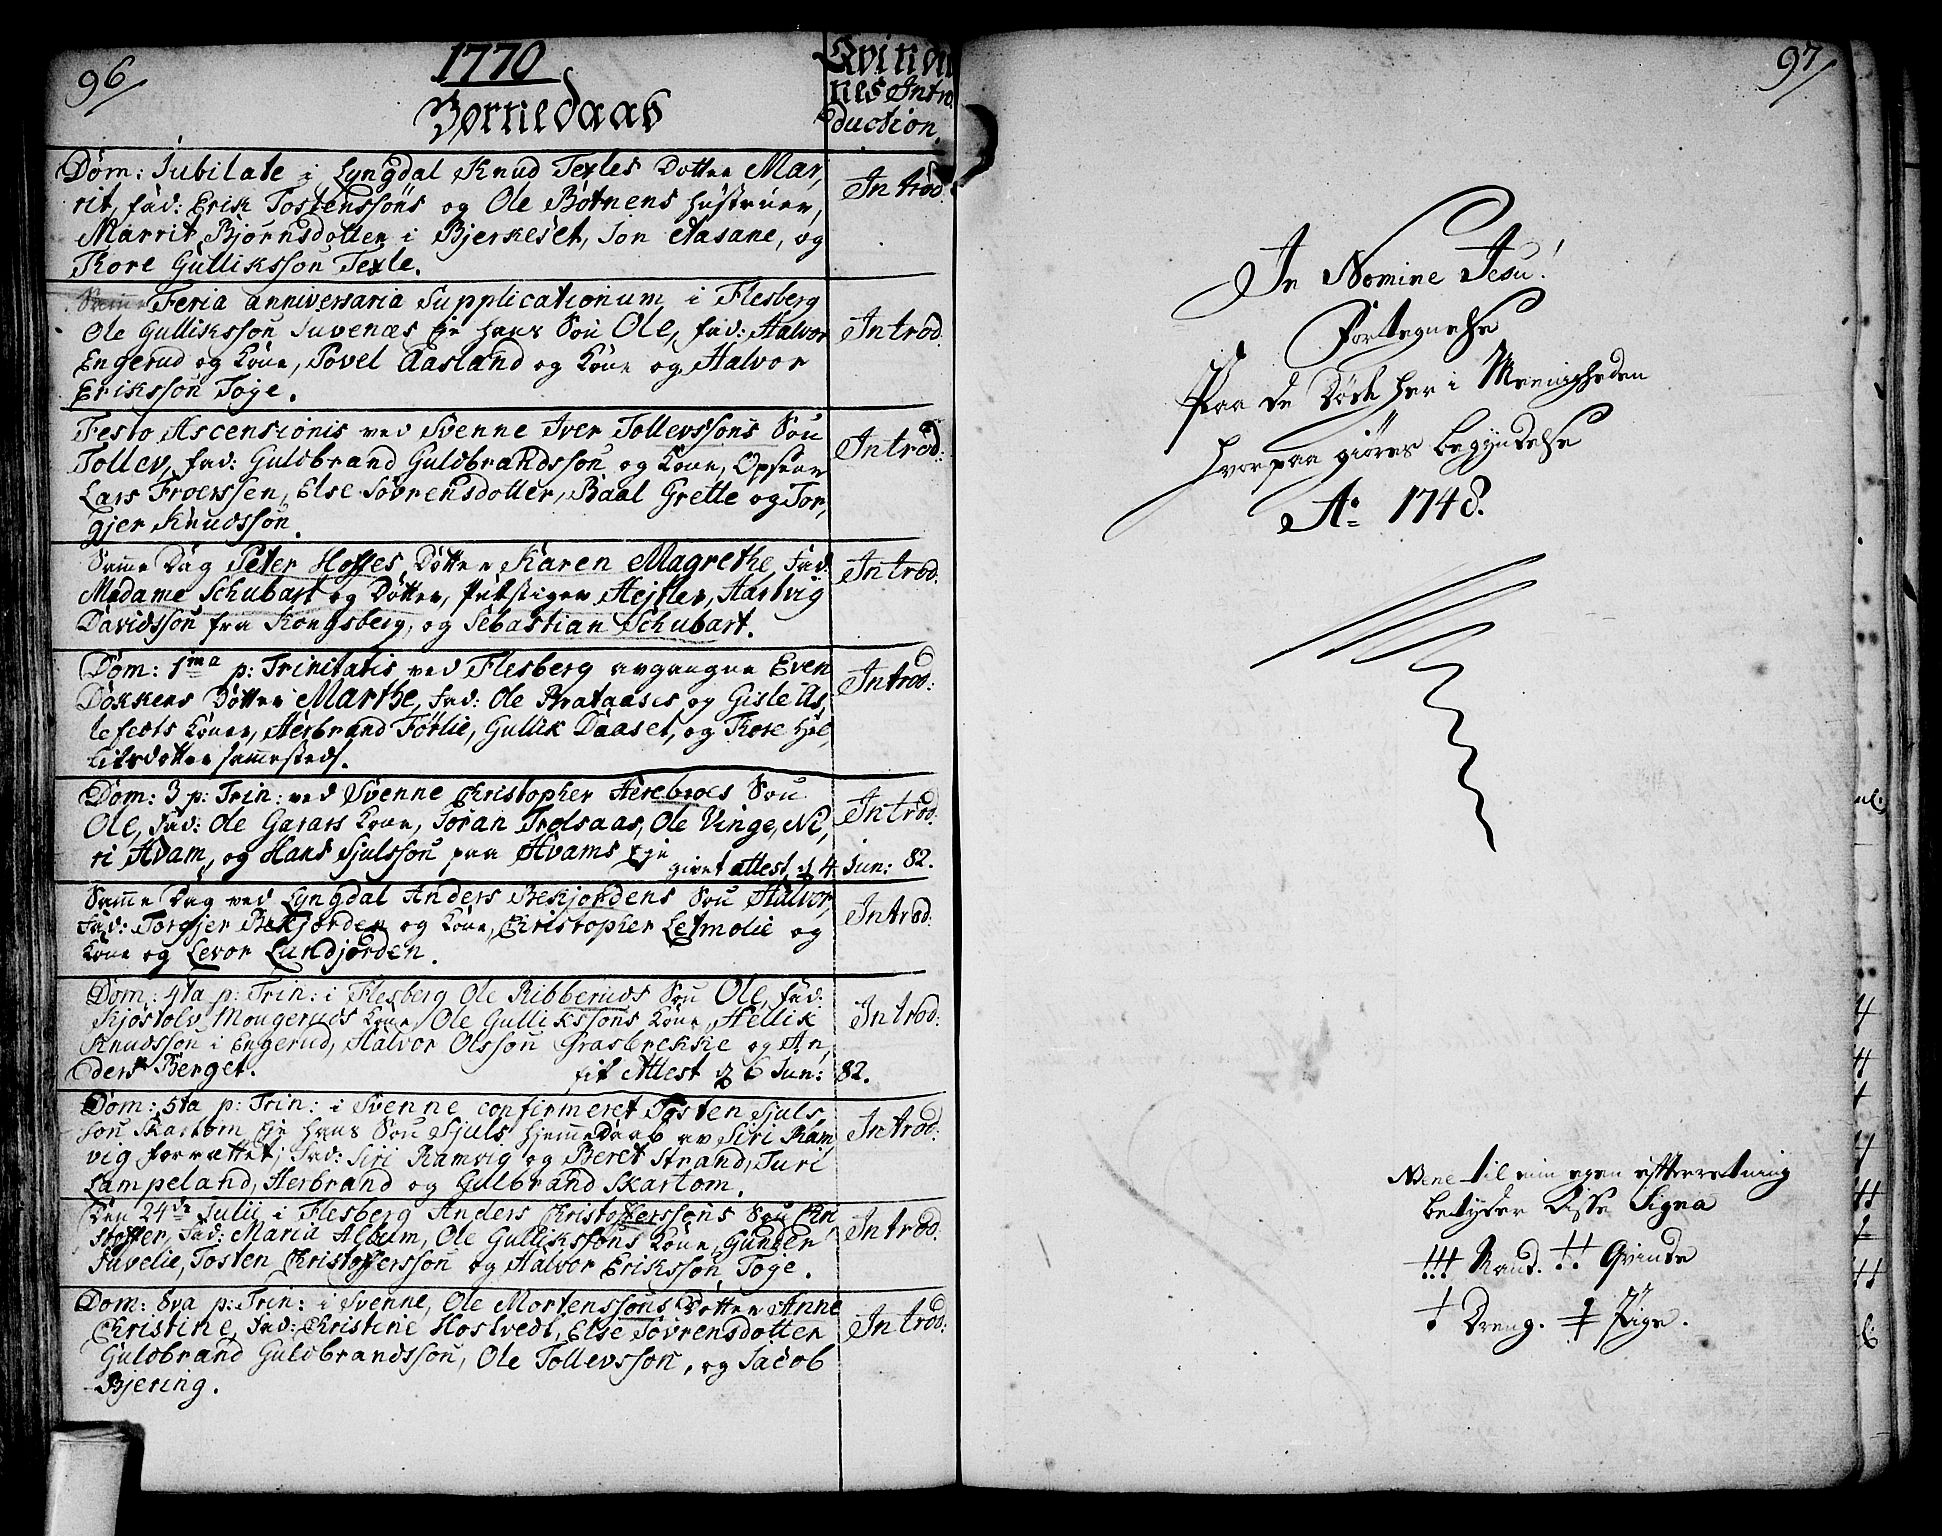 96/
1770
Børnedaab
Qvinder
nes Intro
duction.
Dom: Jubilate i Lyngdal Knud Texles Dotter Mar,
rit, fad: Erik Tostenssøns og Ole Bøtnens Hustruer,
Marrit Bjørnsdotter i Bjerkeset, Jon Aasane, og
Tore Gulliksson Texle.
Introd.
Feria anniversaria Supplicationum i Flesberg
Ole Gulliksson Juvenæs Eje hans Søn Ole, fad: Halvor
Engerud og Kone, Povel Aasland og Kone og Halvor
Eriksson Toge.
Introd.
Festo Ascensionis ved Svenne Iver Tollevssøns Søn
Tollev, fad: Guldbrand Guldbrandssøn og Kone, Opseer
Lars Froerssen, Else Søvrensdotter, Paal Grette og Tor,
gjer Knudssøn.
Introd:
Samme Dag Peter Hoffes Dotter Karen Magrethe, fad.
Madame Schubart og Dotter, Putstiger Hejtler, Hartvig
Davidssøn fra Kongsberg, og Sebastian Schubart.
Introd:
Dom: 1ma p: Trinitatis ved Flesberg avgangne Even
Dokkens Dotter Marthe, fad: Ole Brataases og Gisle As,
lefets Koner, Herbrand Førlie, Gullik Daaset, og Tore Hel,
liksdotter sammesteds.
Introd:
Dom: 3 p: Trin: ved Svenne Christopher Herebroes Søn
Ole, fad: Ole Garaas Kone, Joran Trolsaas, Ole Vinge, Ni,
ri Hvam, og Hans Sjulssøn paa Hvams Eje
givet attest d 4 Jun: 82.
Introd:
Samme Dag ved Lyngdal Anders Bekjordens Søn Halvor,
fad: Torgjer Bekjorden og Kone, Christopher Letmolie og
Kone og Levor Lundjorden.
Introd:
Dom: 4ta p: Trin: i Flesberg Ole Ribberuds Søn Ole, fad:
Kjostolv Mougeruds Kone, Ole Gullikssøns Kone, Hellik
Knudssøn i Engerud, Halvor Olssøn Grasbrekke og An,
ders Berget.
fik Attest d 6 Jun: 82.
Introd:
Dom: 5ta p: Trin: i Svenne confirmeret Tosten Sjuls,
søn Skartom Eje hans Søn Sjuls hjemmedaab av Siri Ram,
vig forrættet; fad: Siri Ramvig og Beret Strand, Turi
Lampeland, Herbrand og Gulbrand Skartom.
Introd:
Den 24de Julii i Flesberg Anders Christofferssøns Søn Chri
stoffer, fad: Maria Album, Ole Gullikssøns Kone, Gunder
Juvelie, Tosten Christofferssøn og Halvor Eriksson Toge.
Introd:
Dom: 8va p: Trin: i Svenne, Ole Mortenssøns Dotter Anne
Christine, fad: Christine Hostvedt, Else Søvrensdotter
Guldbrand Guldbrandssøn, Ole Tollevssøn, og Jacob
Bjering.
Introd:
97/
In Nomine Jesu!
Fortegnelse
Paa de Døde her i Meenigheden
hvorpaa giøres begyndelse
Ao 1748.
Nbene til min egen efterretning
betyder disse Signa
††† Mand. †† Qvinde
† Dreng. ‡ Pige.